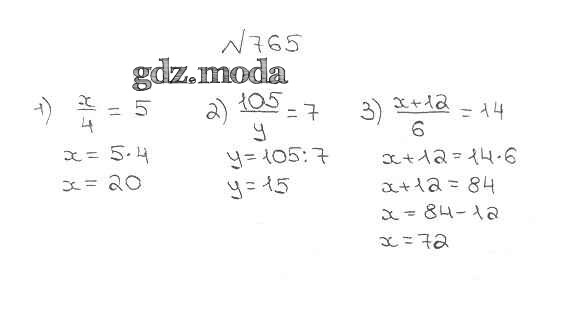 №765
gdz.moda
1) x/4 = 5
x = 5·4
x = 20
2) 105/y = 7
y = 105:7
y = 15
3) x+12/6 = 14
x+12 = 14·6
x+12 = 84
x = 84-12
x = 72